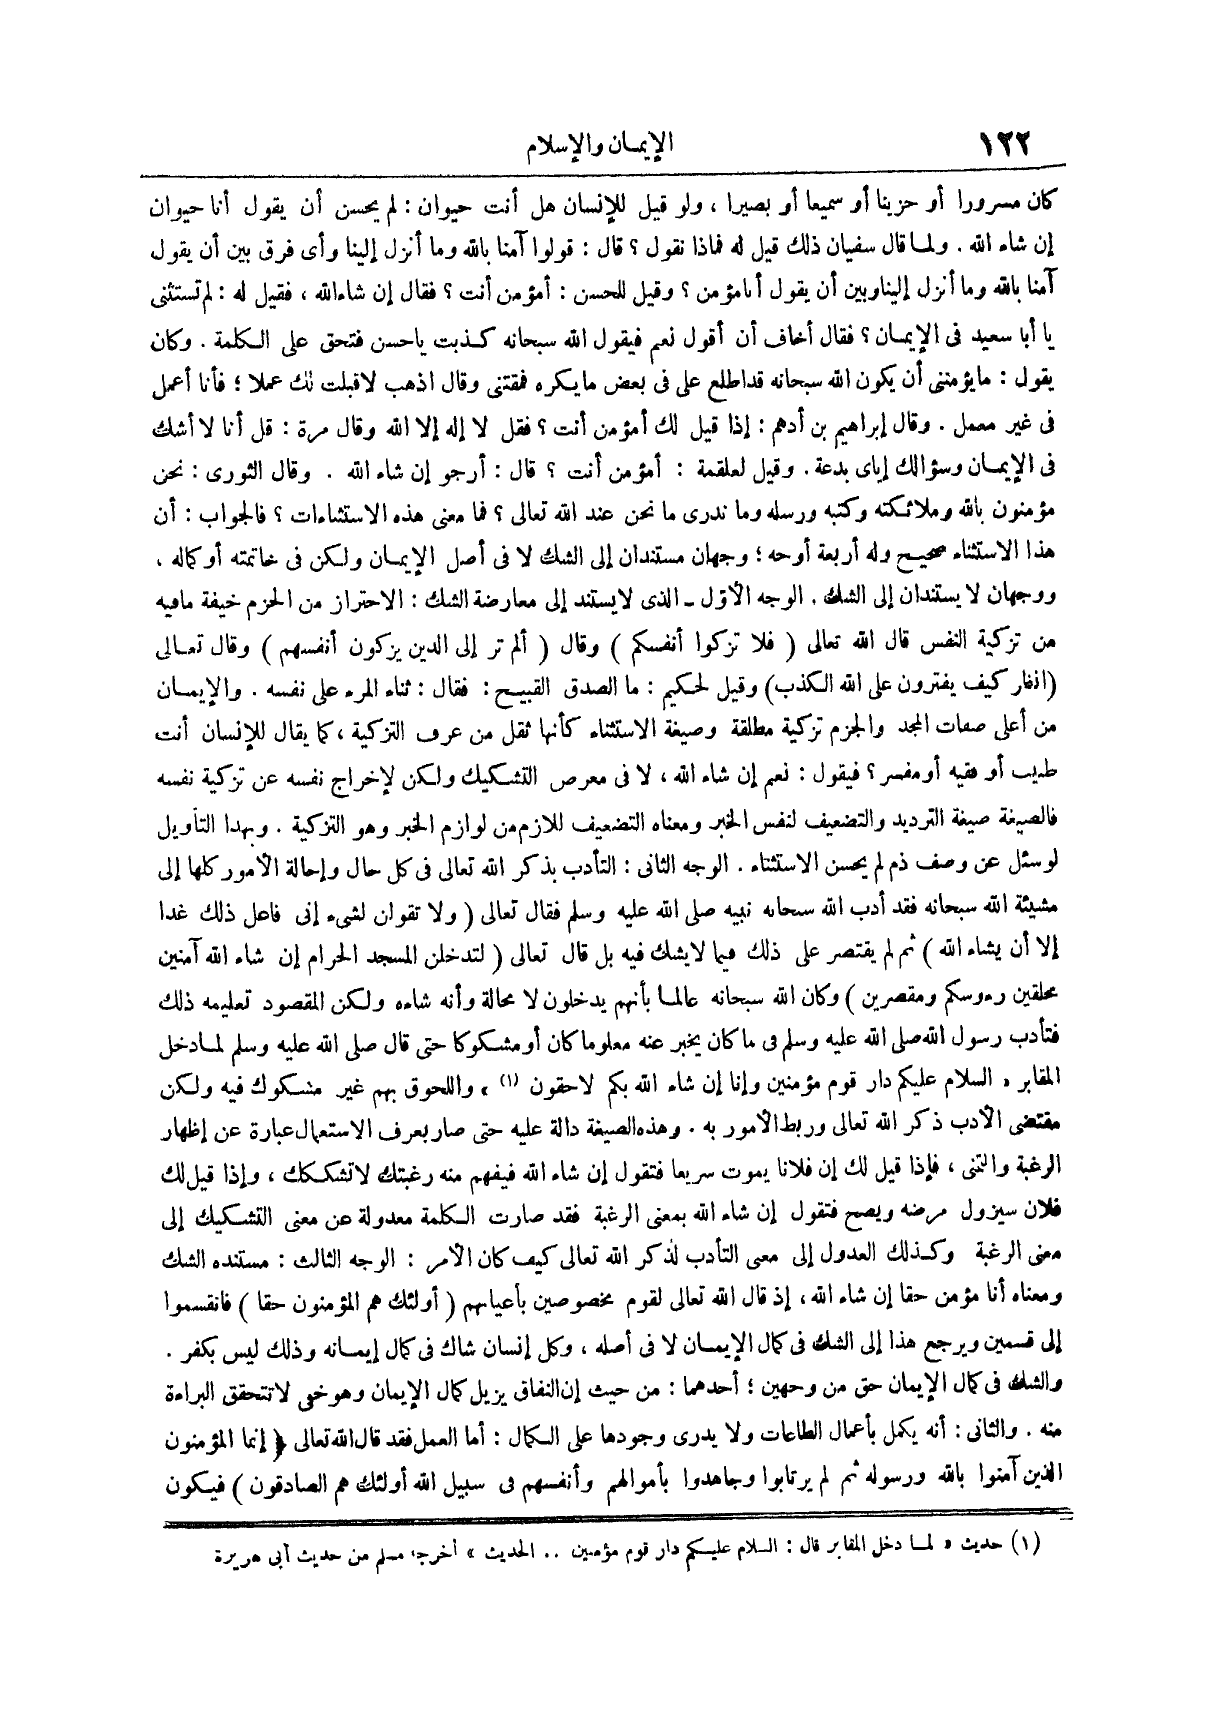 ١٢٢ الإيمان والإسلام
كان مسرورا أو حزينا أو سميعا أو بصيرا ، ولو قيل للإنسان هل أنت حيوان : لم يحسن أن يقول أنا حيوان
إن شاء الله . ولما قال سفيان ذلك قيل له فماذا نقول ؟ قال : قولوا آمنا بالله وما أنزل إلينا وأى فرق بين أن يقول
آمنا بالله وما أنزل إلينا وبين أن يقول أنا مؤمن ؟ وقيل للحسن : أمؤمن أنت ؟ فقال إن شاء الله ، فقيل له : لم تستثنى
يا أبا سعيد فى الإيمان ؟ فقال أخاف أن أقول نعم فيقول الله سبحانه كذبت ياحسن فتحق على الكلمة . وكان
يقول : مايؤمننى أن يكون الله سبحانه قد اطلع على فى بعض مايكره فمقتنى وقال اذهب لاقبلت لك عملا ؛ فأنا أعمل
فى غير معمل . وقال إبراهيم بن أدهم : إذا قيل لك أمؤمن أنت ؟ فقل لا إله إلا الله وقال مرة : قل أنا لا أشك
فى الإيمان وسؤالك إياى بدعة . وقيل لعلقمة : أمؤمن أنت ؟ قال : أرجو إن شاء الله . وقال الثورى : نحن
مؤمنون بالله وملائكته وكتبه ورسله وما ندرى ما نحن عند الله تعالى ؟ فما معنى هذه الاستثناءات ؟ فالجواب : أن
هذا الاستثناء صحيح وله أربعة أوجه ؛ وجهان مستندان إلى الشك لا فى أصل الإيمان ولكن فى خاتمته أو كماله ،
ووجهان لا يستندان إلى الشك . الوجه الأول ـ الذى لايستند إلى معارضة الشك : الاحتراز من الجزم خيفة مافيه
من تزكية النفس قال الله تعالى ( فلا تزكوا أنفسكم ) وقال ( ألم تر إلى الذين يزكون أنفسهم ) وقال تعالى
(انظر كيف يفترون على الله الكذب) وقيل لحكيم : ما الصدق القبيح : فقال : ثناء المرء على نفسه . والإيمان
من أعلى صفات المجد والجزم تزكية مطلقة وصيغة الاستثناء كأنها ثقل من عرف التزكية ، كما يقال للإنسان أنت
طبيب أو فقيه أو مفسر ؟ فيقول : نعم إن شاء الله ، لا فى معرض التشكيك ولكن لإخراج نفسه عن تزكية نفسه
فالصيغة صيغة الترديد والتضعيف لنفس الخبر ومعناه التضعيف للازم من لوازم الخبر وهو التزكية . وبهذا التأويل
لو سئل عن وصف ذم لم يحسن الاستثناء . الوجه الثانى : التأدب بذكر الله تعالى فى كل حال وإحالة الأمور كلها إلى
مشيئة الله سبحانه فقد أدب الله سبحانه نبيه صلى الله عليه وسلم فقال تعالى ( ولا تقولن لشىء إنى فاعل ذلك غدا
إلا أن يشاء الله ) ثم لم يقتصر على ذلك فيما لايشك فيه بل قال تعالى ( لتدخلن المسجد الحرام إن شاء الله آمنين
محلقين رءوسكم ومقصرين ) وكان الله سبحانه عالما بأنهم يدخلون لا محالة وأنه شاءه ولكن المقصود تعليمه ذلك
فتأدب رسول الله صلى الله عليه وسلم فى ما كان يخبر عنه معلوما كان أو مشكوكا حتى قال صلى الله عليه وسلم لما دخل
المقابر « السلام عليكم دار قوم مؤمنين وإنا إن شاء الله بكم لاحقون (١) » واللحوق بهم غير مشكوك فيه ولكن
مقتضى الأدب ذكر الله تعالى وربط الأمور به . وهذه الصيغة دالة عليه حتى صار بعرف الاستعمال عبارة عن إظهار
الرغبة والتمنى ، فإذا قيل لك إن فلانا يموت سريعا فتقول إن شاء الله فيفهم منه رغبتك لا تشككك ، وإذا قيل لك
فلان سيزول مرضه ويصح فتقول إن شاء الله بمعنى الرغبة فقد صارت الكلمة معدولة عن معنى التشكيك إلى
معنى الرغبة وكذلك العدول إلى معنى التأدب لذكر الله تعالى كيف كان الأمر : الوجه الثالث : مستنده الشك
ومعناه أنا مؤمن حقا إن شاء الله ، إذ قال الله تعالى لقوم مخصوصين بأعيانهم ( أولئك هم المؤمنون حقا ) فانقسموا
إلى قسمين ويرجع هذا إلى الشك فى كمال الإيمان لا فى أصله ، وكل إنسان شاك فى كمال إيمانه وذلك ليس بكفر .
والشك فى كمال الإيمان حق من وجهين ؛ أحدهما : من حيث إن النفاق يزيل كمال الإيمان وهو خفى لا تتحقق البراءة
منه . والثانى : أنه يكمل بأعمال الطاعات ولا يدرى وجودها على الكمال : أما العمل فقد قال الله تعالى ( إنما المؤمنون
الذين آمنوا بالله ورسوله ثم لم يرتابوا وجاهدوا بأموالهم وأنفسهم فى سبيل الله أولئك هم الصادقون ) فيكون
(١) حديث « لما دخل المقابر قال : السلام عليكم دار قوم مؤمنين .. الحديث » أخرجه مسلم من حديث أبى هريرة